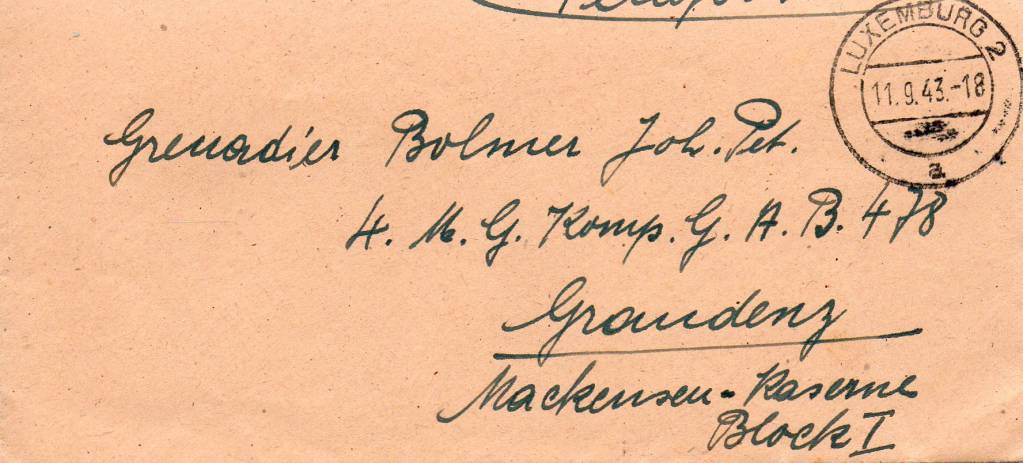 Feldpost
LUXEMBURG 2
11.9.43.-18
a
Grenadier Bolmer Joh. Pet.
4. M. G. Komp. G. A. B. 478
Graudenz
Mackensen-Kaserne
Block I